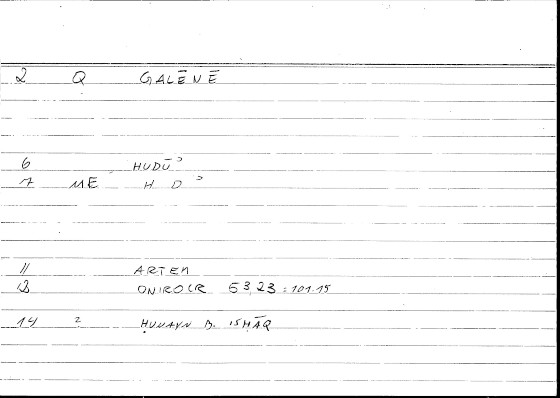 2 Q GALĒNĒ
6 HUDŪʾ
7 ME H D ʾ
11 ARTEM
13 ONIROCR 53,23 : 101.15
14 2 ḤUNAYN B. ISḤĀQ